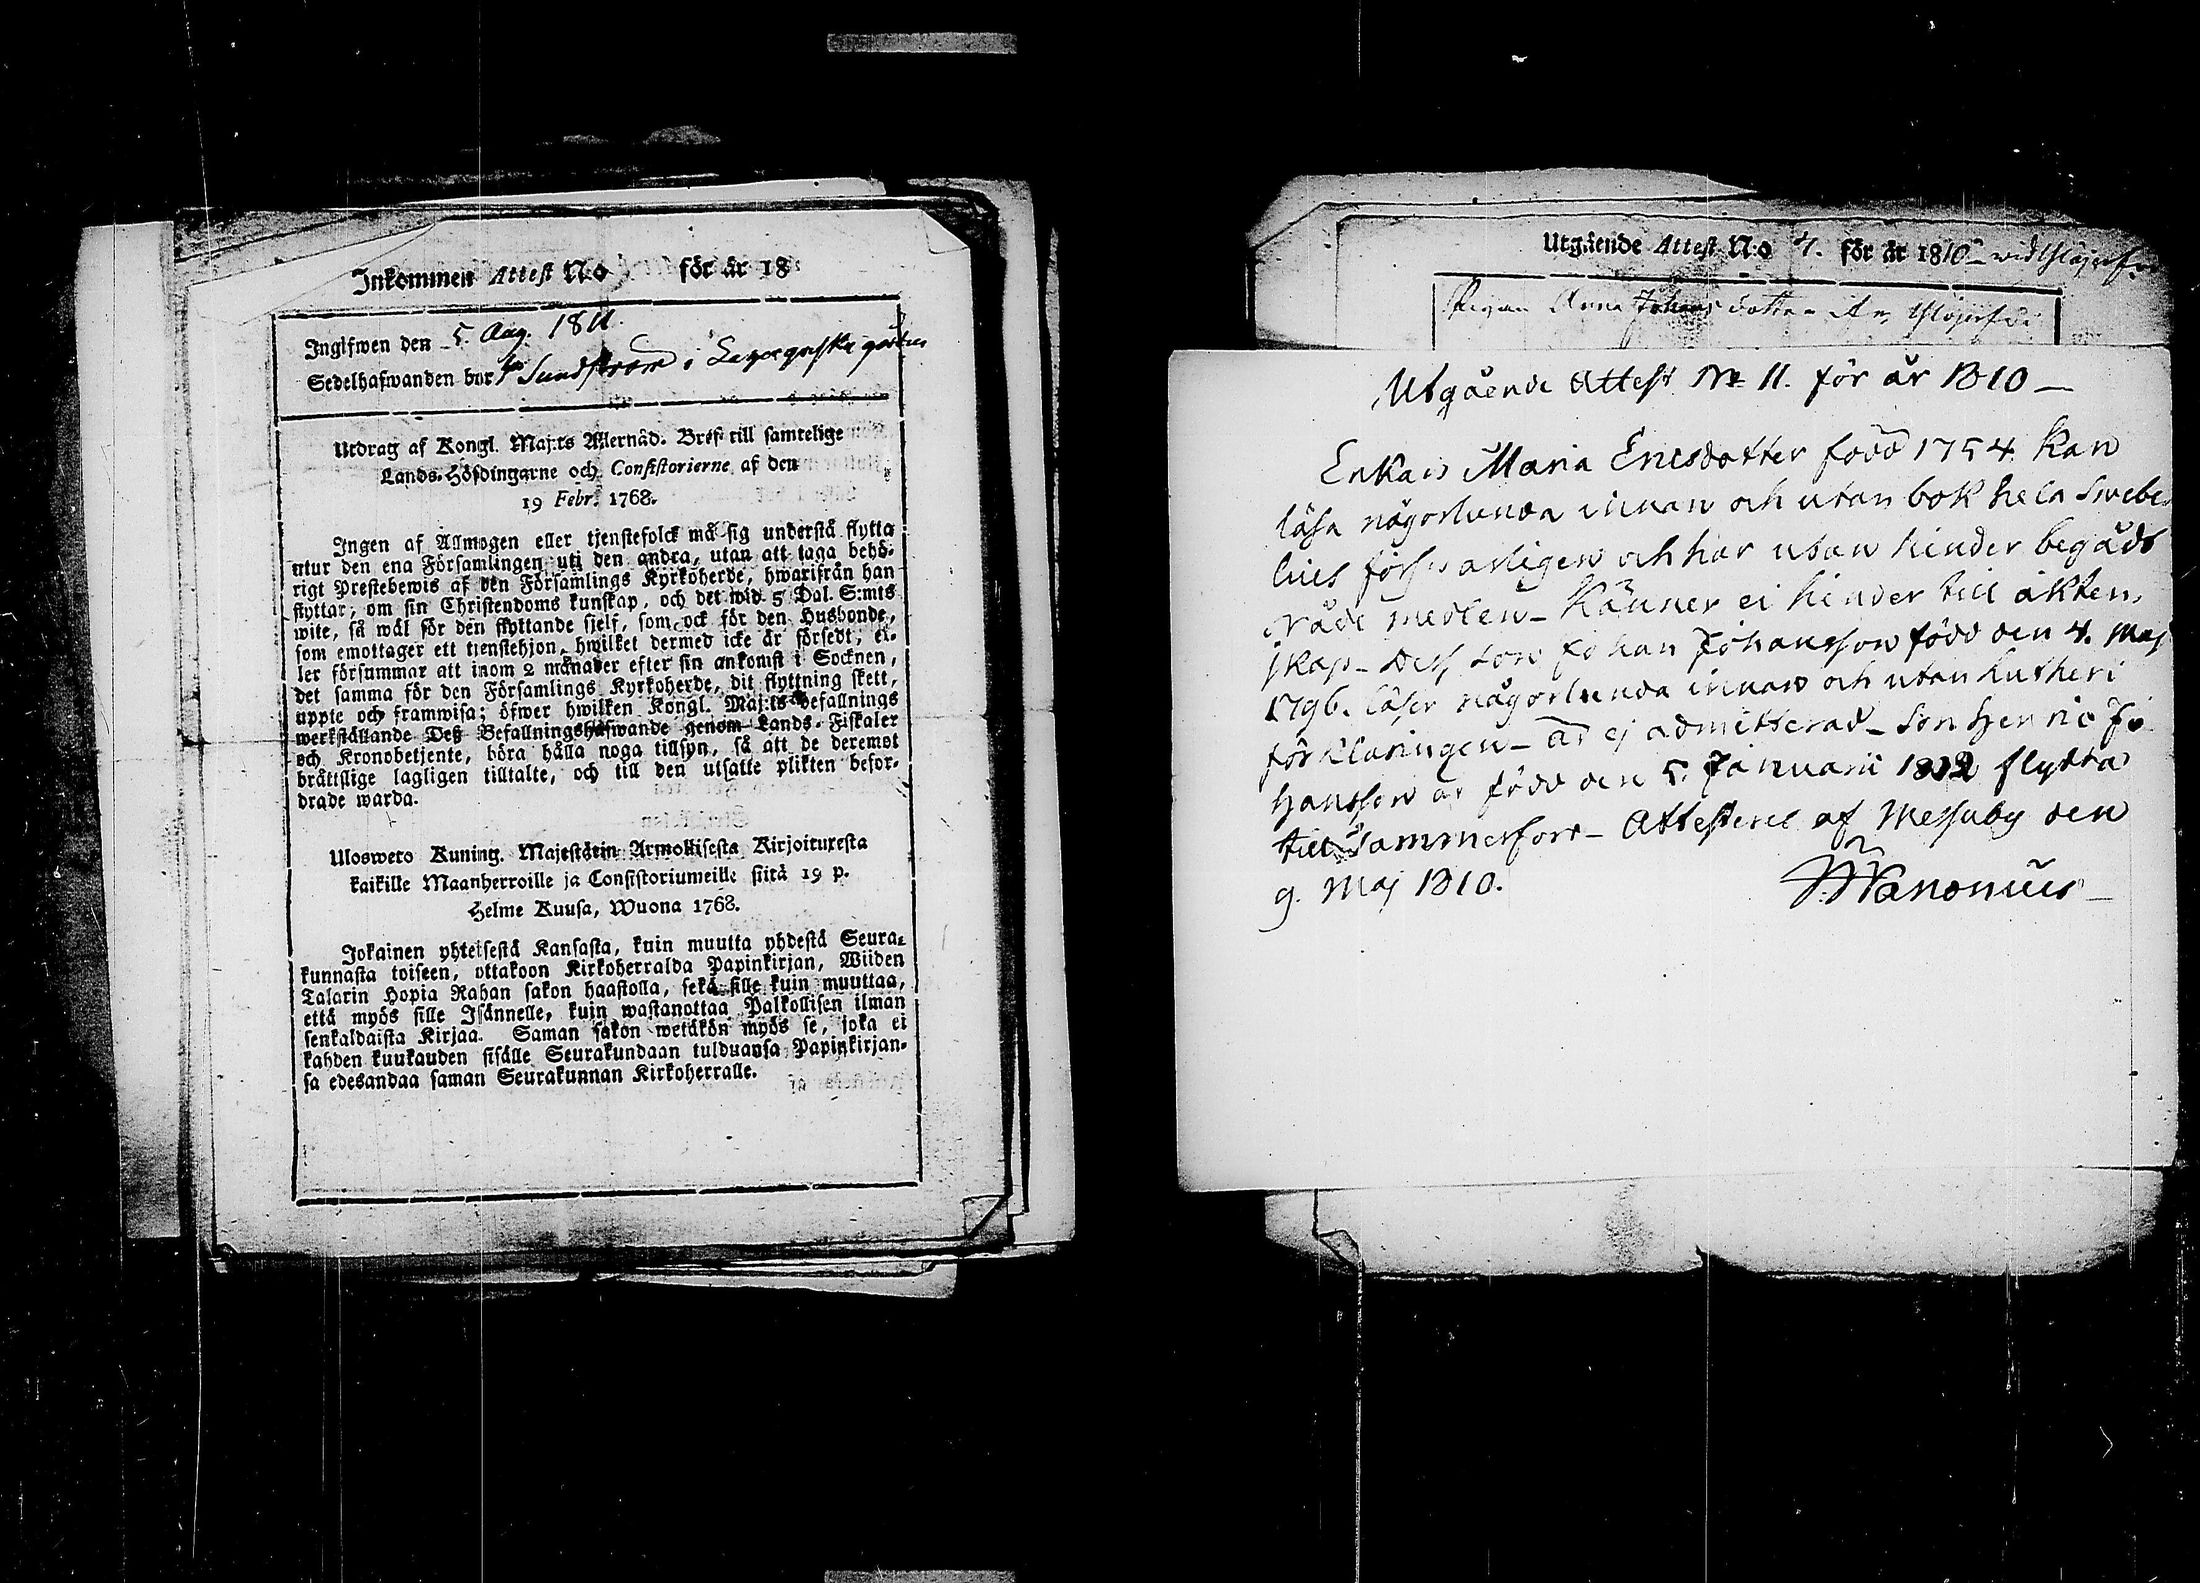 Inkommen Attest No för år 18
Ingifwen den 5. Aug. 1811.
Sedelhafwanden bor Sundström i gården
Utdrag af Kongl. Maj:ts Allernåd. Bref till samtelige
Lands-Höfdingarne och Consistorierne af den
19 Febr. 1768.
Ingen af Allmogen eller tjenstefolck må sig understå flytta
utur den ena Församlingen uti den andra, utan att taga behö-
rigt Prestebewis af den Församlings Kyrkoherde, hwarifrån han
flyttar, om sin Christendoms kunskap, och det wid 5 Dal. S:mts
wite, så wäl för den flyttande sjelf, som ock för den Husbonde,
som emottager ett tjenstehjon, hwilket dermed icke är försedt, el-
ler försummar att inom 2 månader efter sin ankomst i Socknen,
det samma för den Församlings Kyrkoherde, dit flyttning skett,
uppte och framwisa; öfwer hwilken Kongl. Maj:ts befallnings
werkställande Deß Befallningshafwande genom Lands-Fiskaler
och Kronobetjente, böra hålla noga tillsyn, så att de deremot
bråttslige lagligen tilltalte, och till den utsatte plikten befor-
drade warda.
Ulosweto Kuning. Majestätin Armollisesta Kirjoituxesta
kaikille Maanherroille ja Consistoriumeille siitä 19 p.
Helme Kuusa, Wuona 1768.
Jokainen yhteisestä Kansasta, kuin muutta yhdestä Seura-
kunnasta toiseen, ottakoon Kirkoherralda Papinkirjan, Wiiden
Talarin Hopia Rahan sakon haastolla, sekä sille kuin muuttaa,
että myös sille Isännelle, kuin wastanottaa Palkollisen ilman
senkaldaista Kirjaa. Saman sakon wetäkön myös se, joka ei
kahden kuukauden sisälle Seurakundaan tulduansa Papinkirjan-
sa edesandaa saman Seurakunnan Kirkoherralle.
Utgående Attest N:o 4. för år 1810 wid
Pigan Anna Johans dotter
Utgående Attest No 11. för år 1810 —
Enkan Maria Ericsdotter född 1754 kan
läsa någorlunda innan och utan bok hela Swebe
lius försvarligen och har utan hinder begådt
nåde medlen – Känner ei hinder till äkten,
skap – Dess son Johan Johansson född den 4. Maj
1796. läser någorlunda innan och utan Lutheri
förklaringen – är ej admitterad – Son Henric Jo
hansson är född den 5. Januarii 1802 flytta
till Tammerfors – Attesterel af Messuby den
9. Maj 1810. Wanonius –